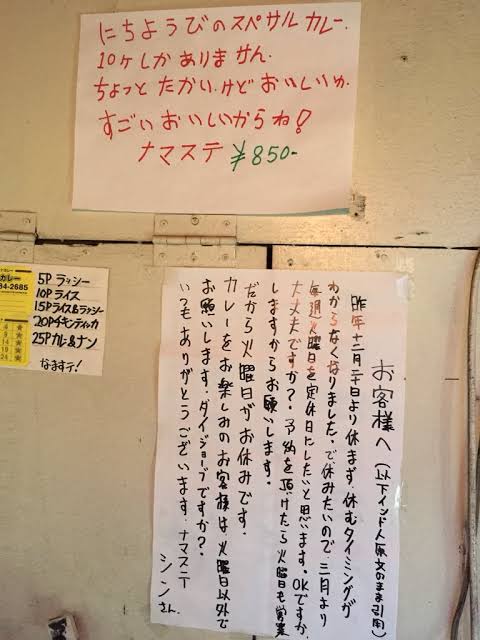 にちようびのスペサルカレー.
10ケしかありません.
ちょっと たかい.けど おいしいゆ.
すごい おいしいからね!
ナマステ ¥850-
カレー
84-2685
5P ラッシー
10P ライス
15P ライス&ラッシー
20P チキンティカ
25P カレー&ナン
なますテ!
4
9
14
19
24
お客様へ(以下インド人原文のまま引用)
昨年十二月二十日より休まず.休むタイミングが
わからなくなりました.で休みたいので.三月より
毎週火曜日を定休日にしたいと思います。OKですか.
大丈夫ですか?.予約を頂けたら火曜日も営業
しますからお願いします.
だから火曜日がお休みです.
カレーをお楽しみのお客様は火曜日以外で
お願いします.ダイジョーブですか?.
いつもありがとうございます.ナマステー
シンさん.